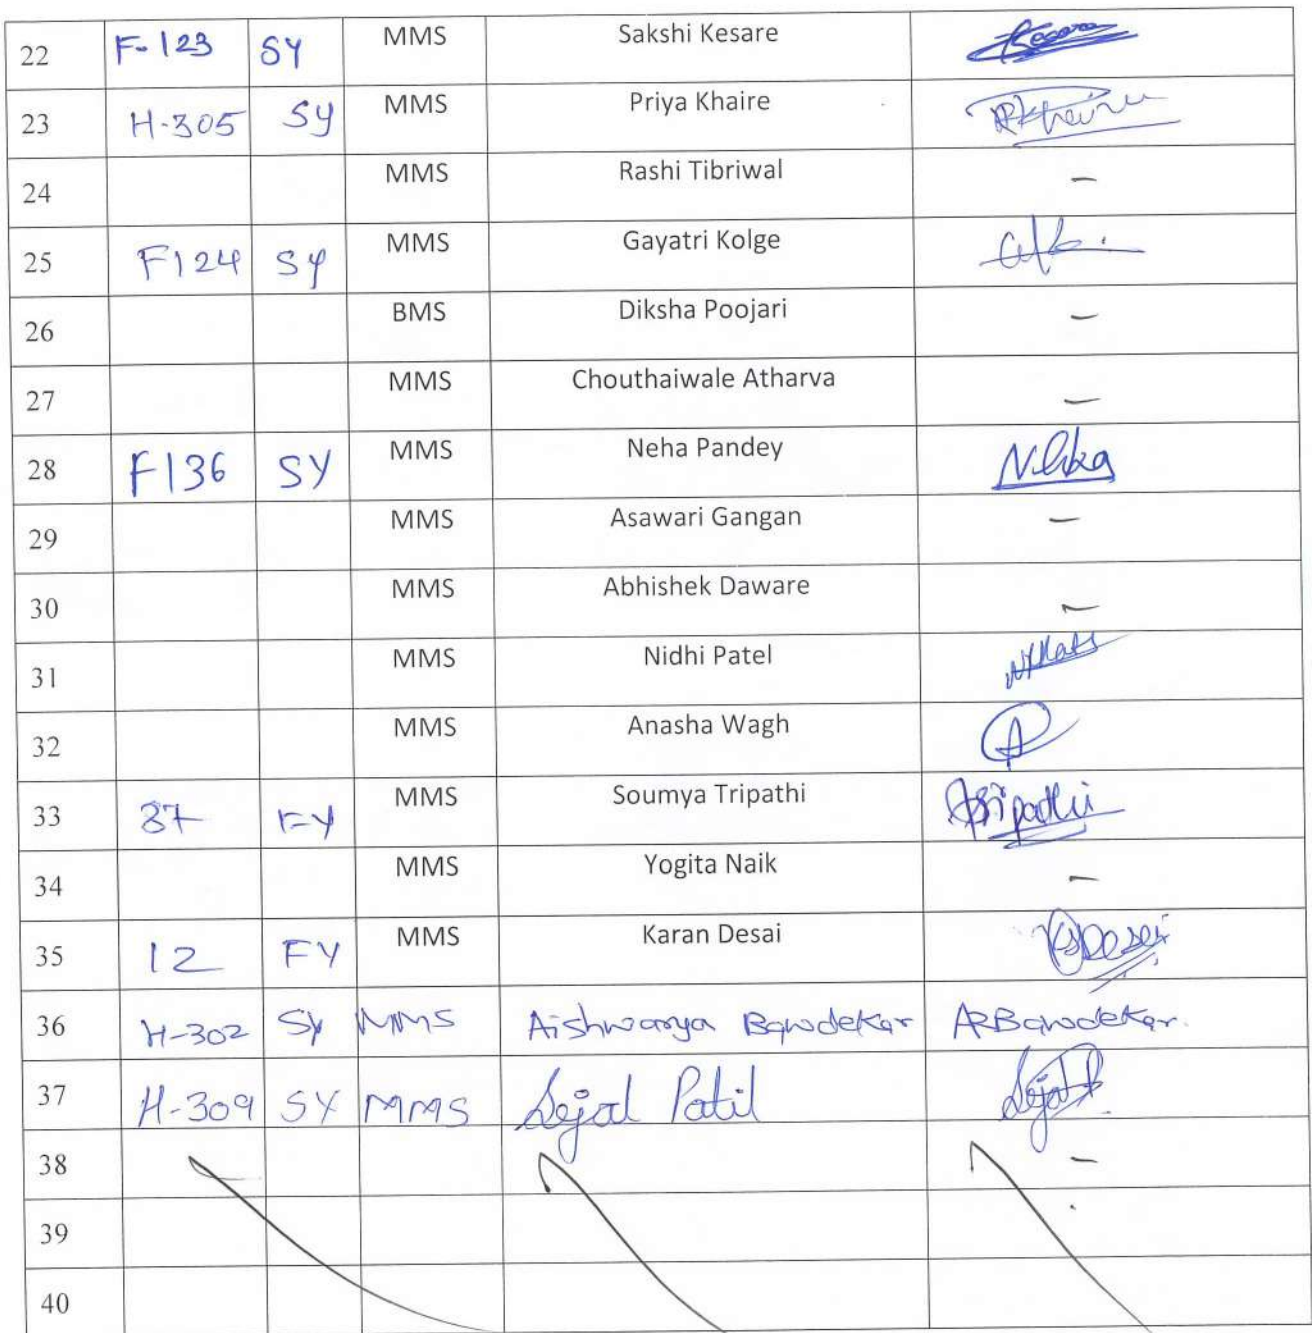 22 F-123 SY MMS Sakshi Kesare
23 H-305 SY MMS Priya Khaire PKhaire
24 MMS Rashi Tibriwal –
25 F124 SY MMS Gayatri Kolge
26 BMS Diksha Poojari –
27 MMS Chouthaiwale Atharva –
28 F136 SY MMS Neha Pandey
29 MMS Asawari Gangan –
30 MMS Abhishek Daware –
31 MMS Nidhi Patel
32 MMS Anasha Wagh
33 37 FY MMS Soumya Tripathi
34 MMS Yogita Naik –
35 12 FY MMS Karan Desai
36 H-302 SY MMS Aishwarya Bawdekar ARBawdekar.
37 H-309 SY MMS Sejal Patil
38 –
39
40